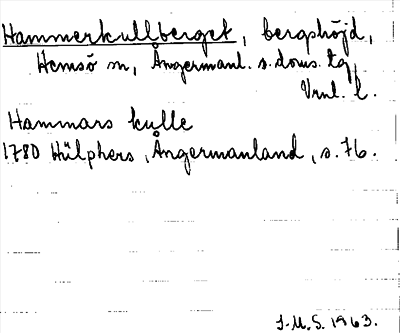 Hammerkullberget, bergshöjd,
Hemsö sn, Ångermanl. s. doms. tg,
Vrnl. l.
Hammars kulle
1780 Hülphers, Ångermanland, s. 76.
I.M.S. 1963.